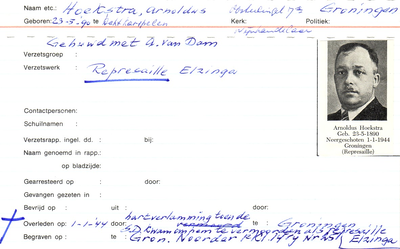 Naam etc.: Hoekstra, Arnoldus Oosterweg 73 Groningen
Geboren: 23-5-90 te Kerk: Politiek:
Gehuwd met G. van Dam
Verzetsgroep :
Verzetswerk : Represaille Elzinga
Contactpersonen:
Schuilnamen :
Verzetsrapp. ingel. dd. : bij:
Naam genoemd in rapp.:
op bladzijde:
Gearresteerd op : door:
Gevangen gezeten in :
Bevrijd op : uit : door:
hartverlamming toen de
Overleden op: 1-1-44 door Groningen
S.D. kwam om hem te vermoorden als represaille
Begraven op : te Gron. Noorder Elzinga
Arnoldus Hoekstra
Geb. 23-5-1890
Neergeschoten 1-1-1944
Groningen
(Represaille)